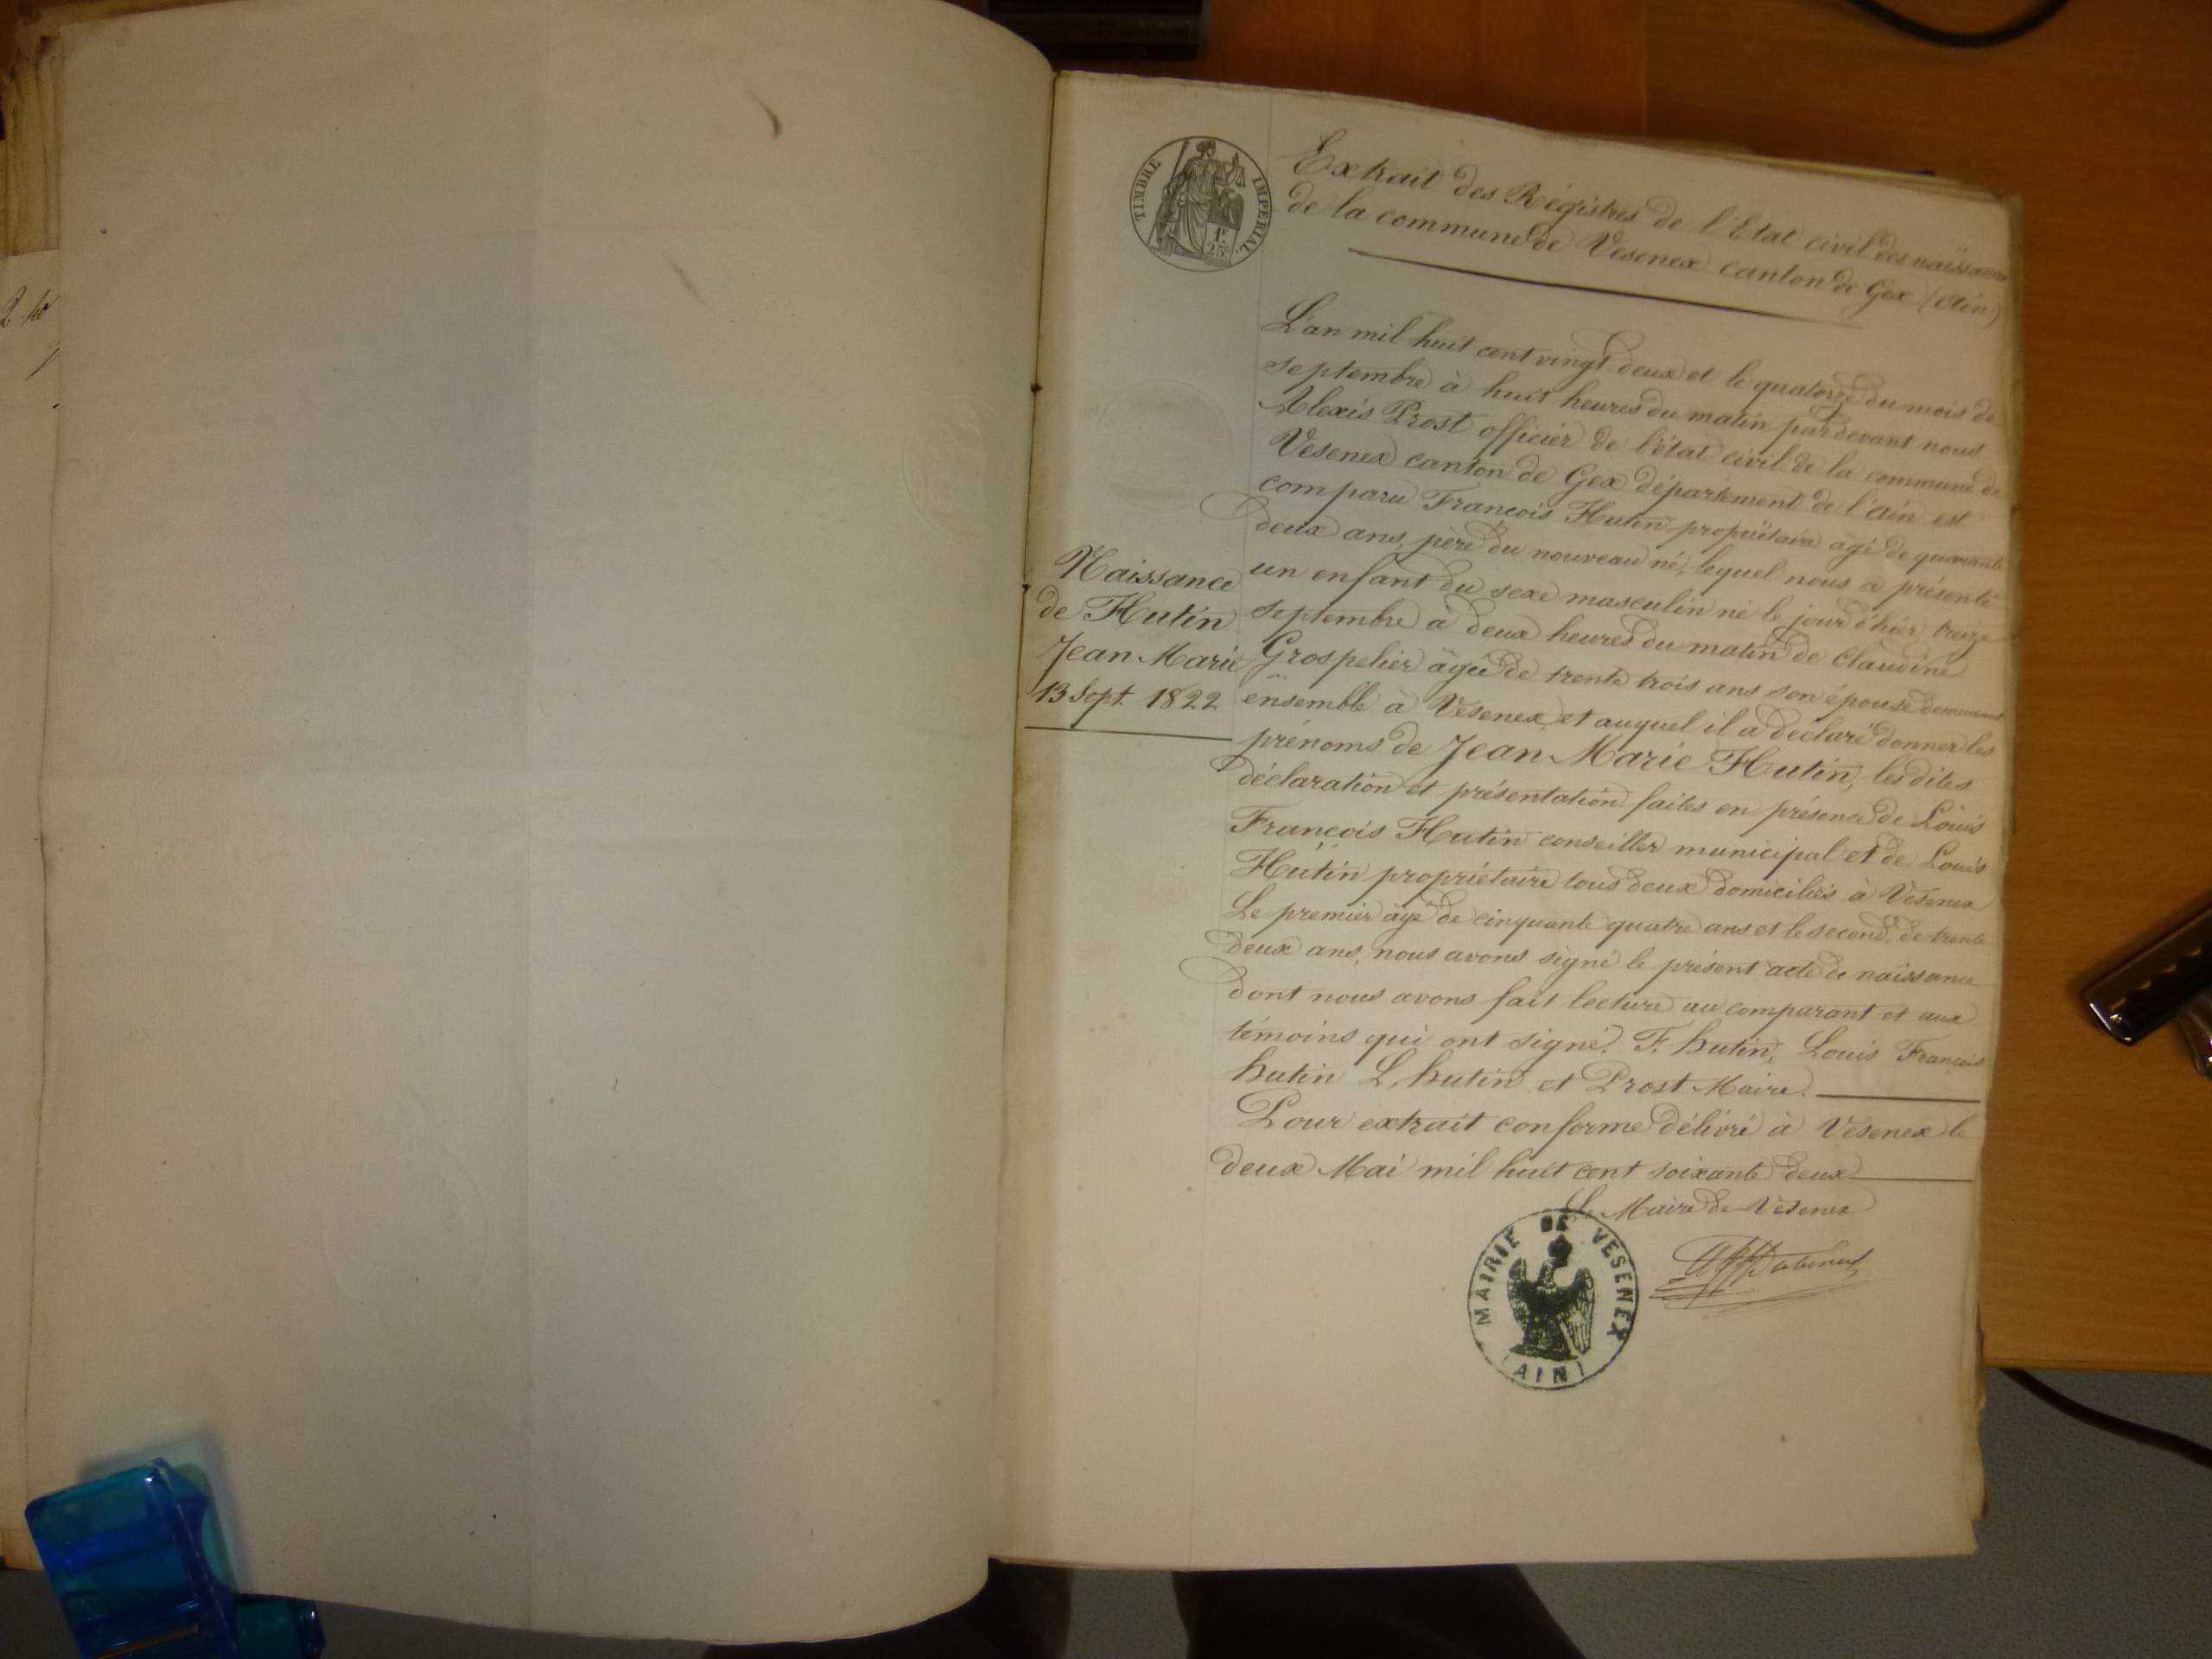 2.40
TIMBRE IMPERIAL.
1F
25C
Extrait des Régistres de l'Etat civil des naissances
de la commune de Vesenex canton de Gex (Ain)
L'an mil huit cent vingt deux et le quatorze du mois de
septembre à huit heures du matin pardevant nous
Alexis Prost officier de l'état civil de la commune de
Vesenex canton de Gex département de l'ain est
comparu François Hutin propriétaire âgé de quarante
deux ans, père du nouveau né, lequel nous a présenté
un enfant du sexe masculin né le jour d'hier treize
septembre à deux heures du matin de Claudine
Grospelier âgée de trente trois ans son épouse demeurant
ensemble à Vesenex, et auquel il a déclaré donner les
prénoms de Jean Marie Hutin, les dites
déclaration et présentation faites en présence de Louis
François Hutin conseiller municipal et de Louis
Hutin propriétaire tous deux domiciliés à Vesenex
Le premier âgé de cinquante quatre ans et le second, de trente
deux ans, nous avons signé le présent acte de naissance
dont nous avons fait lecture au comparant et aux
témoins qui ont signé. F. hutin, Louis François
hutin L. hutin et Prost Maire.
Pour extrait conforme délivré à Vesenex le
deux Mai mil huit cent soixante deux
Le Maire de Vesenex
Naissance
de Hutin
Jean Marie
13 Sept. 1822
MAIRIE DE VESENEX
(AIN)